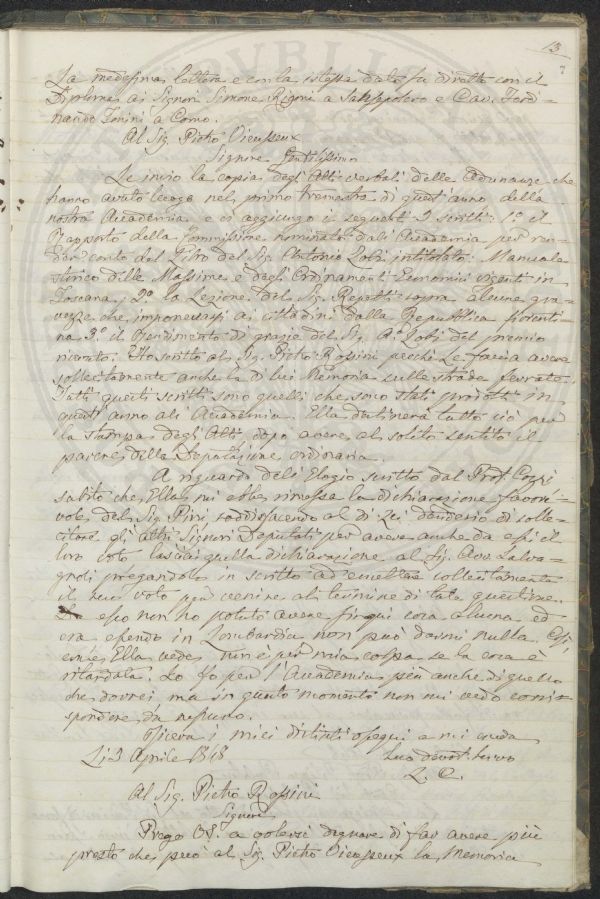 13
7
La medesima lettera e con la stessa data fu diretta con il
Diploma ai Signori Simone Rigoni a e Cav. Ferdi-
nando a Como.
Al Sig. Pietro Vieusseux
Signore Gentilissimo
Le invio la copia degli Atti verbali delle Adunanze che
hanno avuto luogo nel primo trimestre di quest'anno della
nostra Accademia e ci aggiungo i seguenti 3 scritti: 1.º il
Rapporto della Commissione nominata dall'Accademia per ren-
der conto del Libro del Sig. Antonio Zobi intitolato: Manuale
storico delle Massime e degli Ordinamenti Economici vigenti in
Toscana; 2.º la Lezione del Sig. Repetti sopra alcune gra-
vezze che imponevasi ai cittadini dalla Repubblica fiorenti-
na 3.º il Rendimento di grazie del Sig. A. Zobi del premio
ricevuto. Ho scritto al Sig. Pietro Rossini perchè Le faccia avere
sollecitamente anche la di lui Memoria sulle strade ferrate.
Tutti questi scritti sono quelli che sono stati prodotti in
quest'anno all'Accademia. Ella destinerà tutto ciò per
la stampa degli Atti dopo avere al solito sentito il
parere della Deputazione ordinaria.
A riguardo dell'Elogio scritto dal Prof.
subito che Ella mi ebbe rimessa la dichiarazione favore-
vole del Sig. Piri soddisfacendo al di Lei desiderio di solle-
citare gli altri Signori Deputati per avere anche da essi il
loro voto lasciai quella dichiarazione al Sig. Avv. Salva-
gnoli pregandolo in scritto ad emettere sollecitamente
il suo voto per venire al termine di tale questione.
Da esso non ho potuto avere finqui cosa alcuna ed
ora essendo in Lombardia non può darmi nulla. Così,
com'è Ella vede, non è per mia colpa se la cosa è
ritardata. Lo fo per l'Accademia più anche di quello
che dovrei ma in questo momento non mi vedo corri-
spondere da nessuno.
Riceva i miei distinti ossequi e mi creda
Li 3 Aprile 1848 Suo devot. servo
L. C.
Al Sig. Pietro Rossini
Signore
Prego VS. a volersi degnare di far avere più
presto che può al Sig. Pietro Vieusseux la Memoria